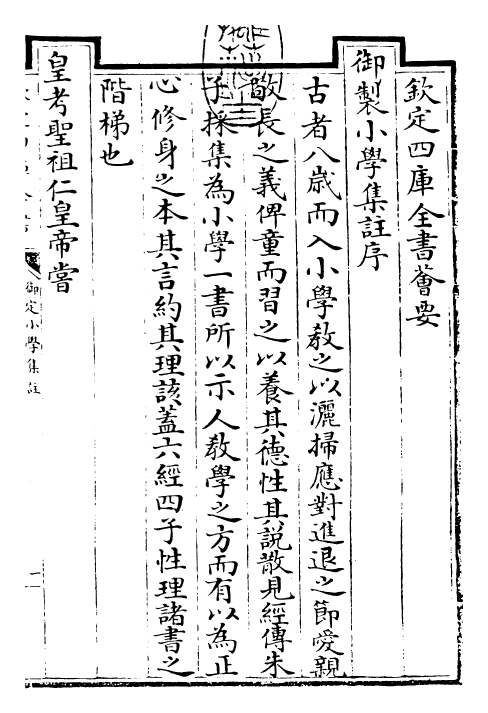 欽定四庫全書薈要
御製小學集註序
古者八歲而入小學教之以灑掃應對進退之節愛親
敬長之義俾童而習之以養其德性其說散見經傳朱
子採集為小學一書所以示人教學之方而有以為正
心修身之本其言約其理該蓋六經四子性理諸書之
階梯也
皇考聖祖仁皇帝嘗
御定小學集註
一